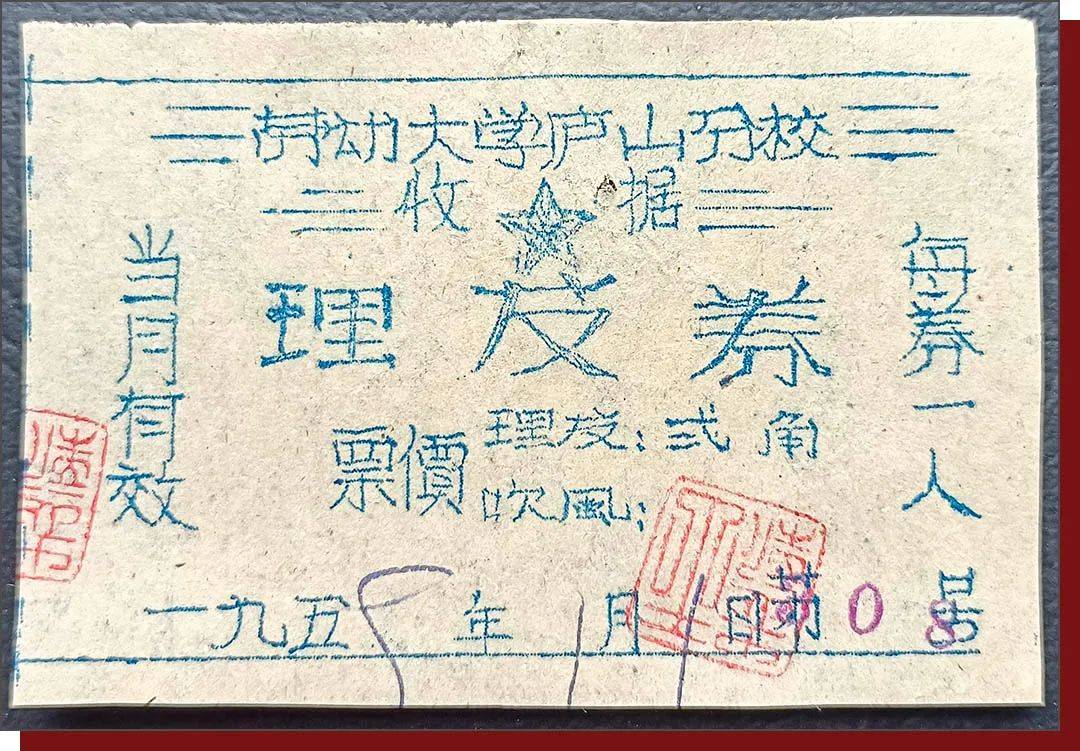 劳动大学庐山分校
收据
理发券
每券一人
当月有效
票價
理发:弍角
吹風:
一九五 年1月1日第08号